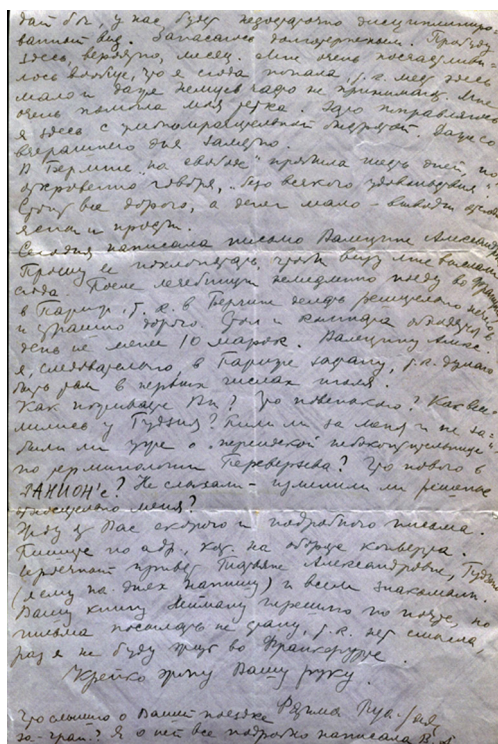 дай бог, у нас будет недостаточно дисциплиниро-
ванный вид. Запасаюсь долготерпением. Пробуду
здесь, вероятно, месяц. Мне очень посчастливи-
лось вообще, что я сюда попала, т.к. мест здесь
мало и даже немцев надо не принимают. Мне
очень помогла моя тетка. Зато поправляюсь
я здесь с умопомрачительной быстротой. Даже со
вчерашнего дня заметно.
В Берлине "на свободе" прожила шесть дней, но
откровенно говоря, "без всякого удовольствия".
Стоит все дорого, а денег мало - выводы
ясны и просты.
Сегодня написала письмо Валентине Александр.
Прошу ее похлопотать, чтобы визу мне выслали
сюда. После лечебницы немедленно поеду во Францию
в Париж, т.к. в Берлине делать решительно нечего
и страшно дорого. Стол и квартира обходятся в
день не менее 10 марок. Валентину Алекс.
я, следовательно, в Париже застану, т.к. думаю
быть там в первых числах июля.
Как поживаете Вы? Что новенького? Как
у Гудзия? Пили ли за меня и не за-
были ли уже о "персидской
по терминологии Переверзева? Что нового в
РАНИОН'е? Не слыхали - изменили ли решение
относительно меня?
Жду от Вас скорого и подробного письма.
Пишите по адр., как на обороте конверта.
Сердечный привет Татьяне Александровне, Гудзию
(ему на-днях напишу) и всем знакомым.
Вашу книгу Нейману перешлю по почте, но
письма посылать не стану, т.к. нет смысла,
раз я не буду жить во Франкфурте.
Крепко жму Вашу руку.
Что слышно о Вашей поездке
за-гран.? Я о ней все подробно написала В. А.